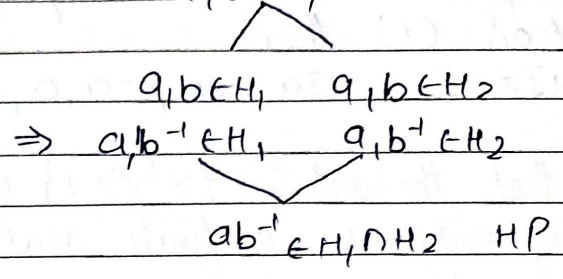 a,b ∈ H₁ a,b ∈ H₂
⇒ a,b⁻¹ ∈ H₁ a,b⁻¹ ∈ H₂
ab⁻¹ ∈ H₁ ∩ H₂ HP